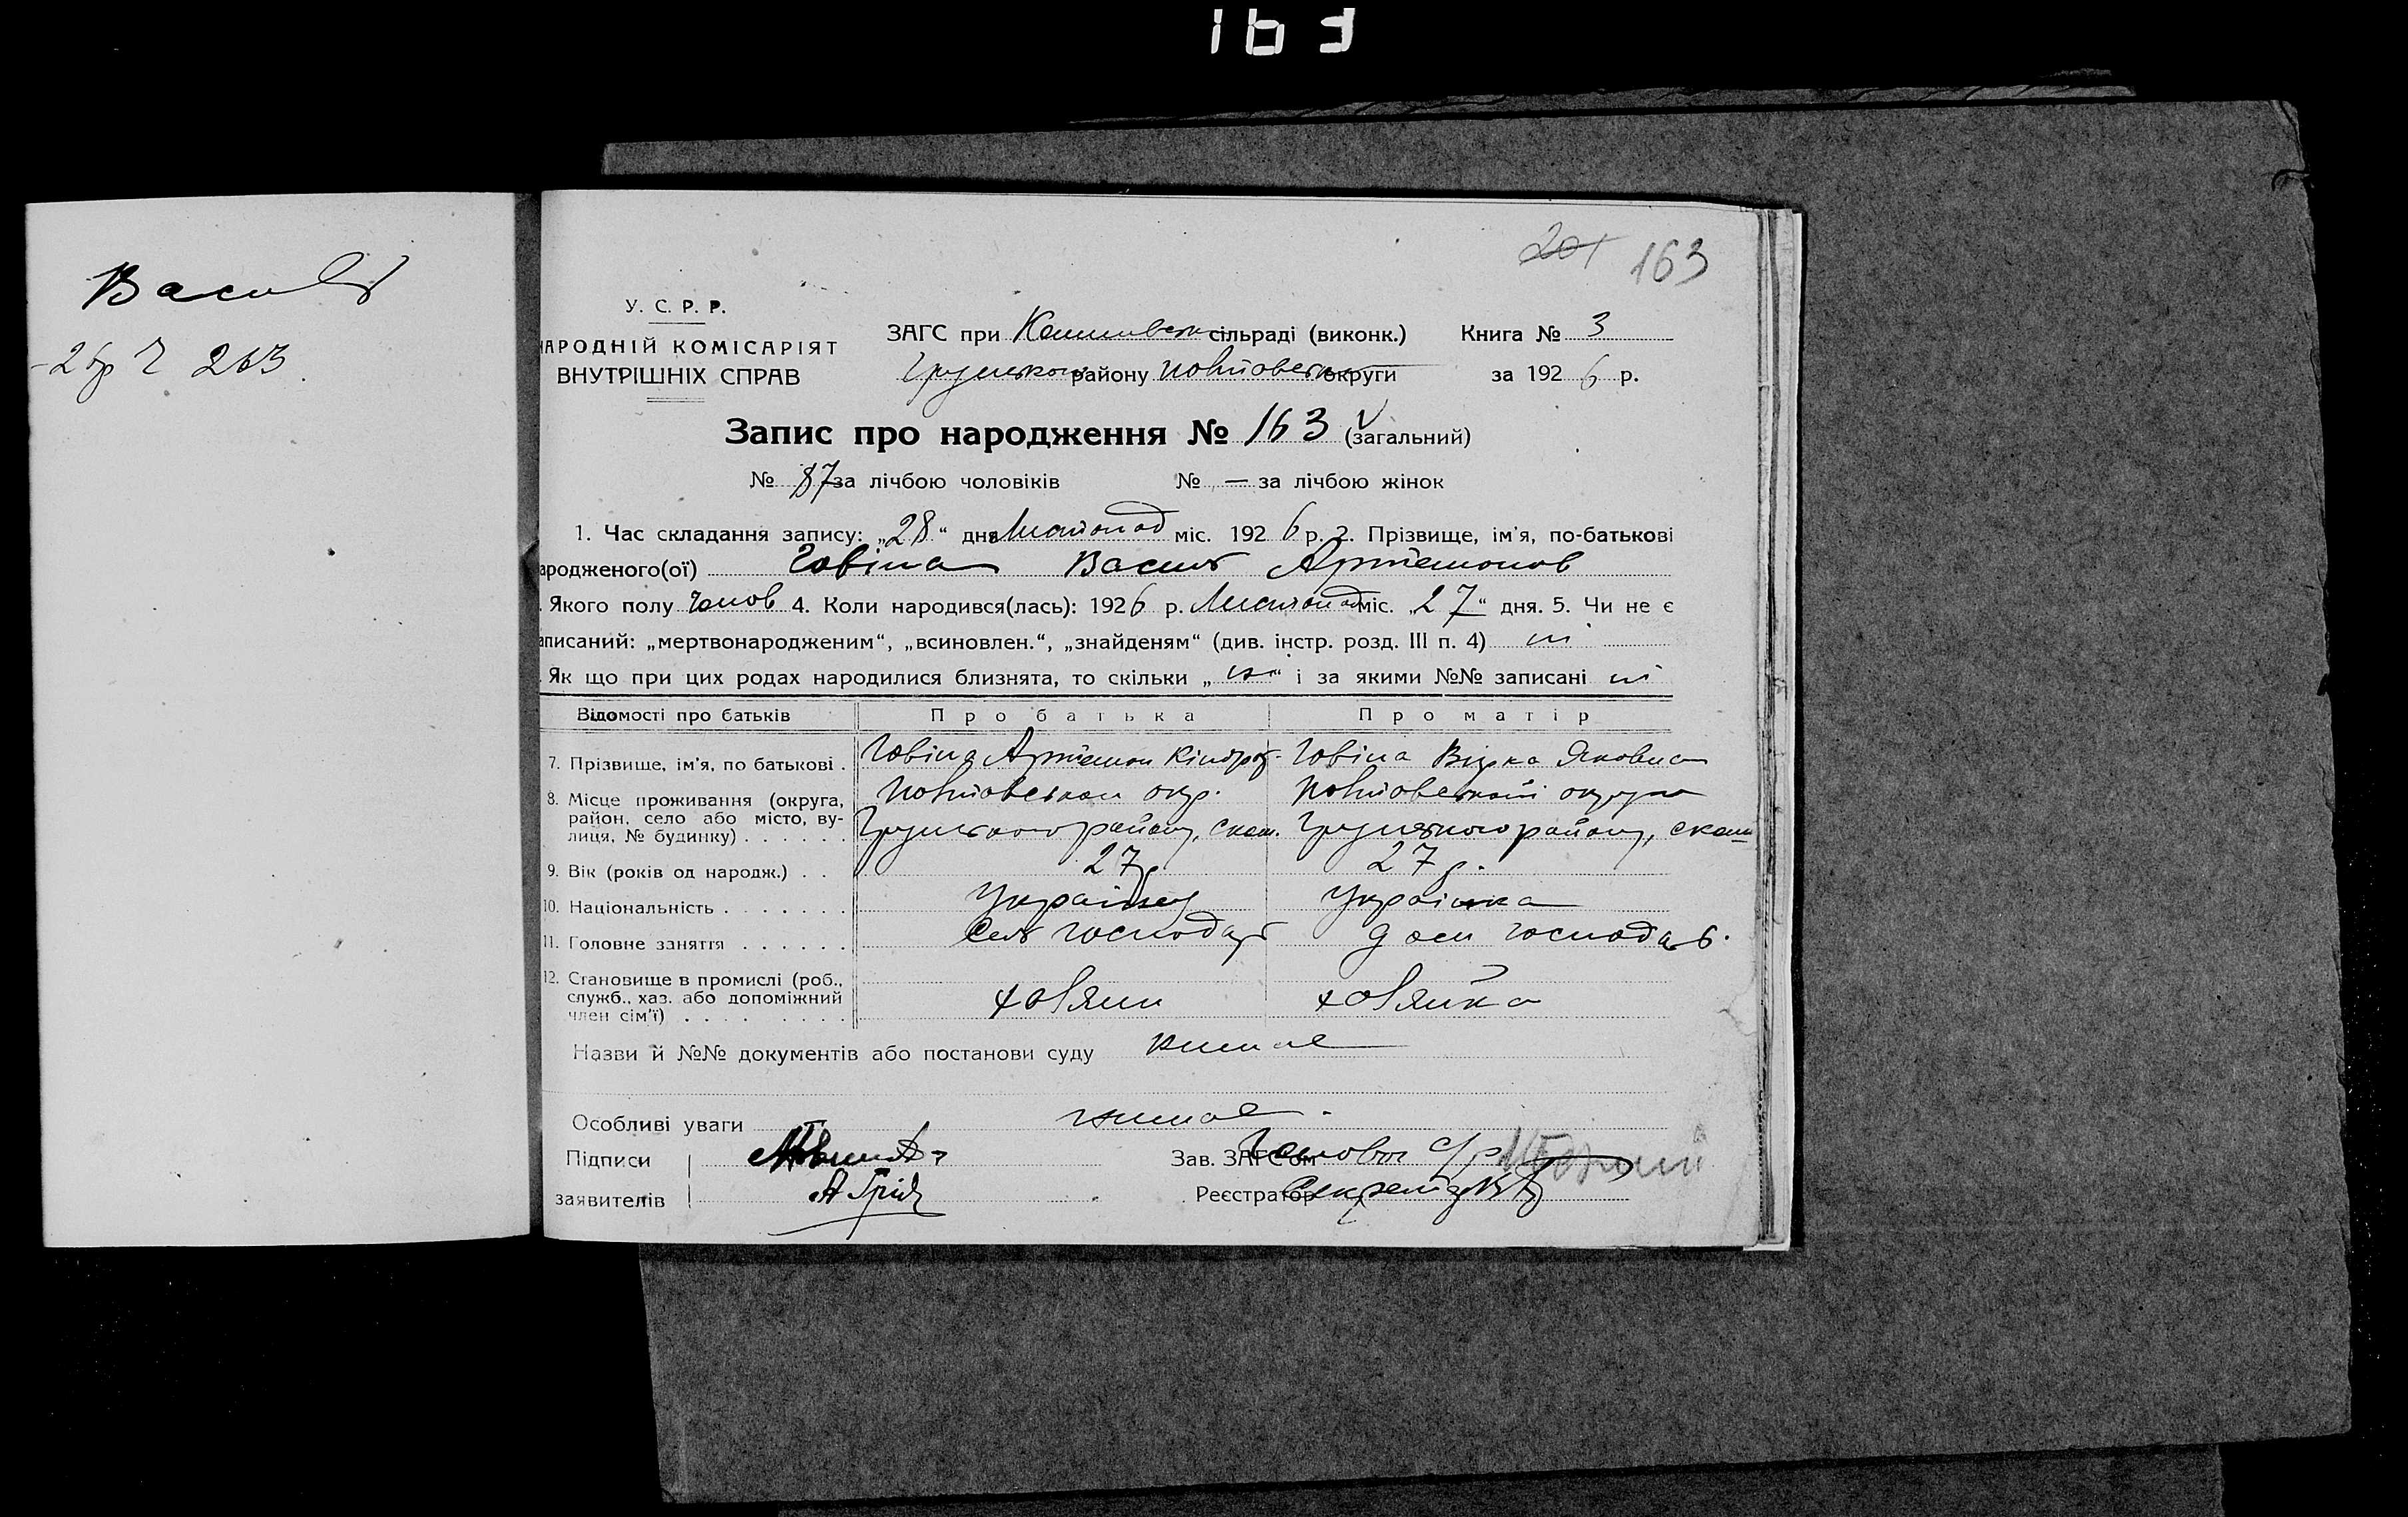 163
201 163
Василь
263
У. С. Р. Р.
НАРОДНІЙ КОМІСАРІЯТ
ВНУТРІШНІХ СПРАВ
ЗАГС при сільраді (виконк.) Книга № 3
району Полтавськ округи за 1926 р.
Запис про народження № 163 (загальний)
№ 87 за лічбою чоловіків № — за лічбою жінок
1. Час складання запису: „28“ дня Листопад міс. 1926 р. 2. Прізвище, ім'я, по-батькові
ародженого(ої) Говіна Василь Артемонов
. Якого полу Чолов 4. Коли народився(лась): 1926 р. Листопад міс. „27“ дня. 5. Чи не є
аписаний: „мертвонародженим“, „всиновлен.“, „знайденям“ (див. інстр. розд. III п. 4) ні
. Як що при цих родах народилися близнята, то скільки „ні“ і за якими №№ записані ні
Відомості про батьків Про батька Про матір
7. Прізвище, ім'я, по батькові . Говіна Артемон Кіндр. Говіна Вірка Яковна
8. Місце проживання (округа, район, село або місто, вулиця, № будинку) . . . . . .
Полтавськои окр. Полтавськой округи
району, району,
9. Вік (років од народж.) . . 27 р. 27 р.
10. Національність . . . . . . . Українец Українка
11. Головне заняття . . . . . . Сель господар дом господар.
12. Становище в промислі (роб., служб., хаз. або допоміжний член сім'ї) . . . . . . . . хозяин хозяйка
Назви й №№ документів або постанови суду немае
Особливі уваги немае.
Підписи
заявителів
Зав. ЗАГС'ом Голова с/р
Реєстратор Секретарь